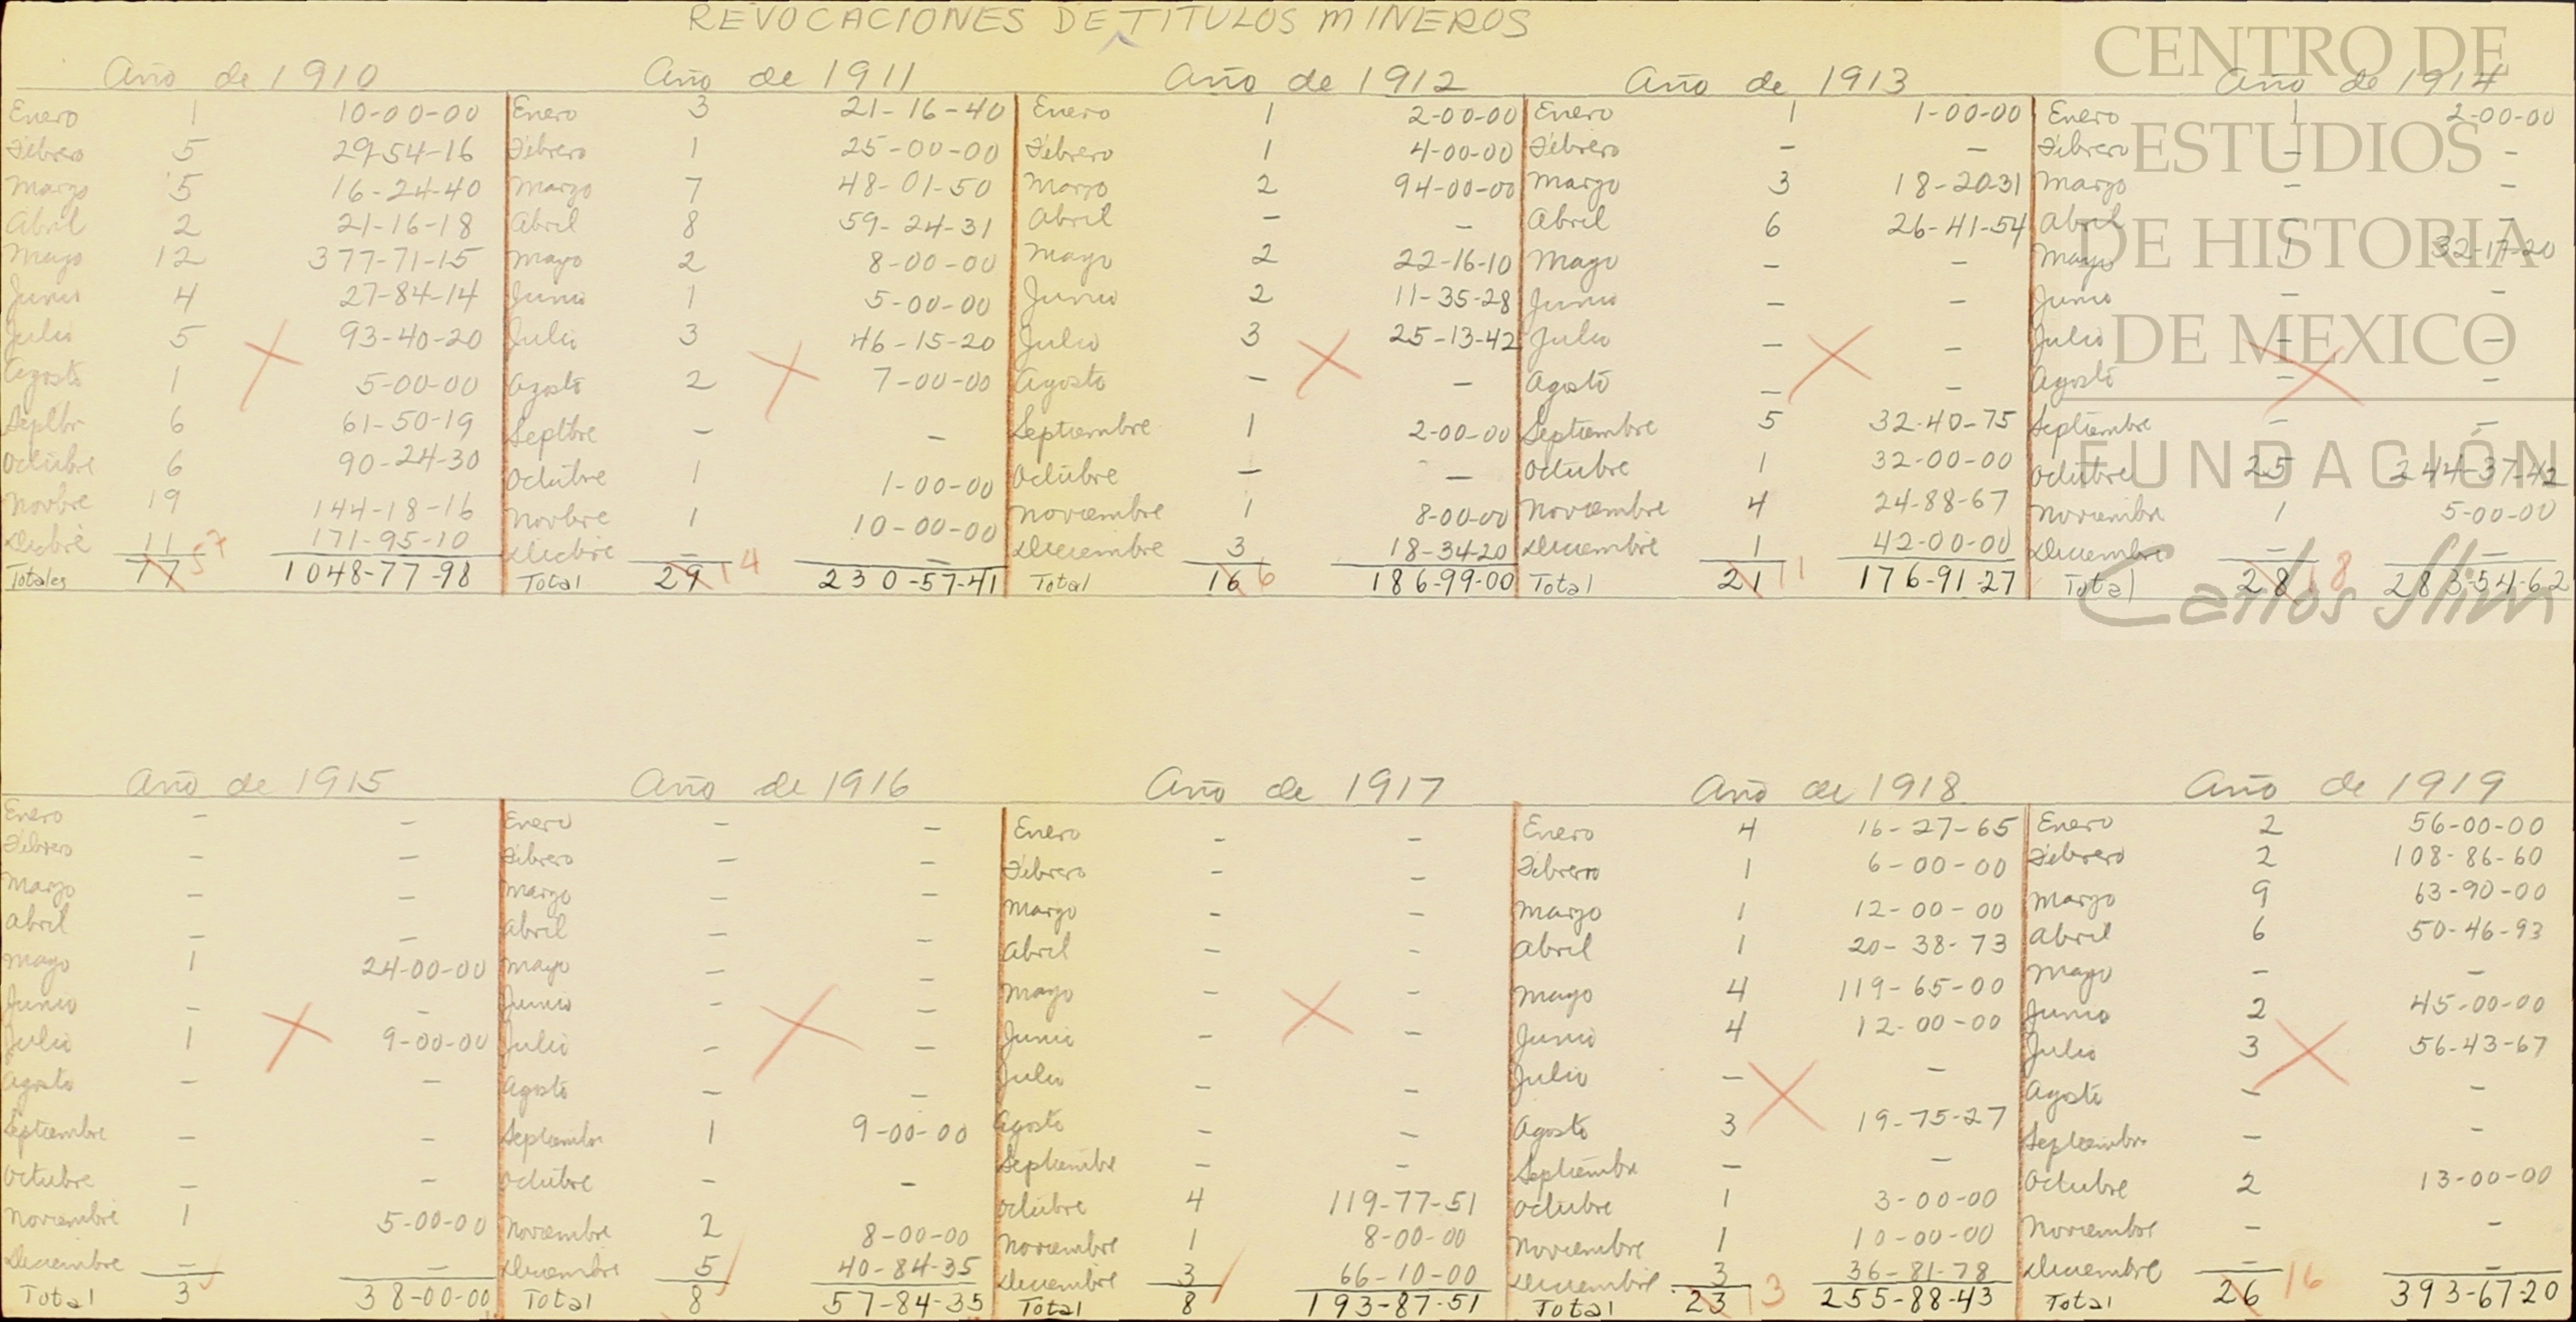 REVOCACIONES DE TITULOS MINEROS
Año de 1910 Año de 1911 Año de 1912 Año de 1913 Año de 1914
Enero 1 10-00-00 Enero 3 21-16-40 Enero 1 2-00-00 Enero 1 1-00-00 Enero 1 2-00-00
Febrero 5 29-54-16 Febrero 1 25-00-00 Febrero 1 4-00-00 Febrero - - Febrero - -
Marzo 5 16-24-40 Marzo 7 48-01-50 Marzo 2 94-00-00 Marzo 3 18-20-31 Marzo - -
Abril 2 21-16-18 Abril 8 59-24-31 Abril - - Abril 6 26-41-54 Abril
Mayo 12 377-71-15 Mayo 2 8-00-00 Mayo 2 22-16-10 Mayo - - Mayo 1 32-17-20
Junio 4 27-84-14 Junio 1 5-00-00 Junio 2 11-35-28 Junio - - Junio - -
Julio 5 93-40-20 Julio 3 46-15-20 Julio 3 25-13-42 Julio - - Julio - -
Agosto 1 5-00-00 Agosto 2 7-00-00 Agosto - - Agosto - - Agosto - -
Septbr 6 61-50-19 Septbre - - Septiembre 1 2-00-00 Septiembre 5 32-40-75 Septiembre - -
Octubre 6 90-24-30 Octubre 1 1-00-00 Octubre - - Octubre 1 32-00-00 Octubre 25 244-37-42
Novbre 19 144-18-16 Novbre 1 10-00-00 Noviembre 1 8-00-00 Noviembre 4 24-88-67 Noviembre 1 5-00-00
Dicbre 11 171-95-10 Dicbre - - Diciembre 3 18-34-20 Diciembre 1 42-00-00 Diciembre - -
Totales 77 57 1048-77-98 Total 29 14 230-57-41 Total 16 6 186-99-00 Total 21 11 176-91-27 Total 28 18 283-54-62
Año de 1915 Año de 1916 Año de 1917 Año de 1918 Año de 1919
Enero - - Enero - - Enero - - Enero 4 16-27-65 Enero 2 56-00-00
Febrero - - Febrero - - Febrero - - Febrero 1 6-00-00 Febrero 2 108-86-60
Marzo - - Marzo - - Marzo - - Marzo 1 12-00-00 Marzo 9 63-90-00
Abril - - Abril - - Abril - - Abril 1 20-38-73 Abril 6 50-46-93
Mayo 1 24-00-00 Mayo - - Mayo - - Mayo 4 119-65-00 Mayo - -
Junio - - Junio - - Junio - - Junio 4 12-00-00 Junio 2 45-00-00
Julio 1 9-00-00 Julio - - Julio - - Julio - - Julio 3 56-43-67
Agosto - - Agosto - - Agosto - - Agosto 3 19-75-27 Agosto - -
Septiembre - - Septiembre 1 9-00-00 Septiembre - - Septiembre - - Septiembre - -
Octubre - - Octubre - - Octubre 4 119-77-51 Octubre 1 3-00-00 Octubre 2 13-00-00
Noviembre 1 5-00-00 Noviembre 2 8-00-00 Noviembre 1 8-00-00 Noviembre 1 10-00-00 Noviembre - -
Diciembre - - Diciembre 5 40-84-35 Diciembre 3 66-10-00 Diciembre 3 36-81-78 Diciembre - -
Total 3 38-00-00 Total 8 57-84-35 Total 8 193-87-51 Total 23 13 255-88-43 Total 26 16 393-67-20
CENTRO DE
ESTUDIOS
DE HISTORIA
DE MEXICO
FUNDACIÓN
Carlos Slim